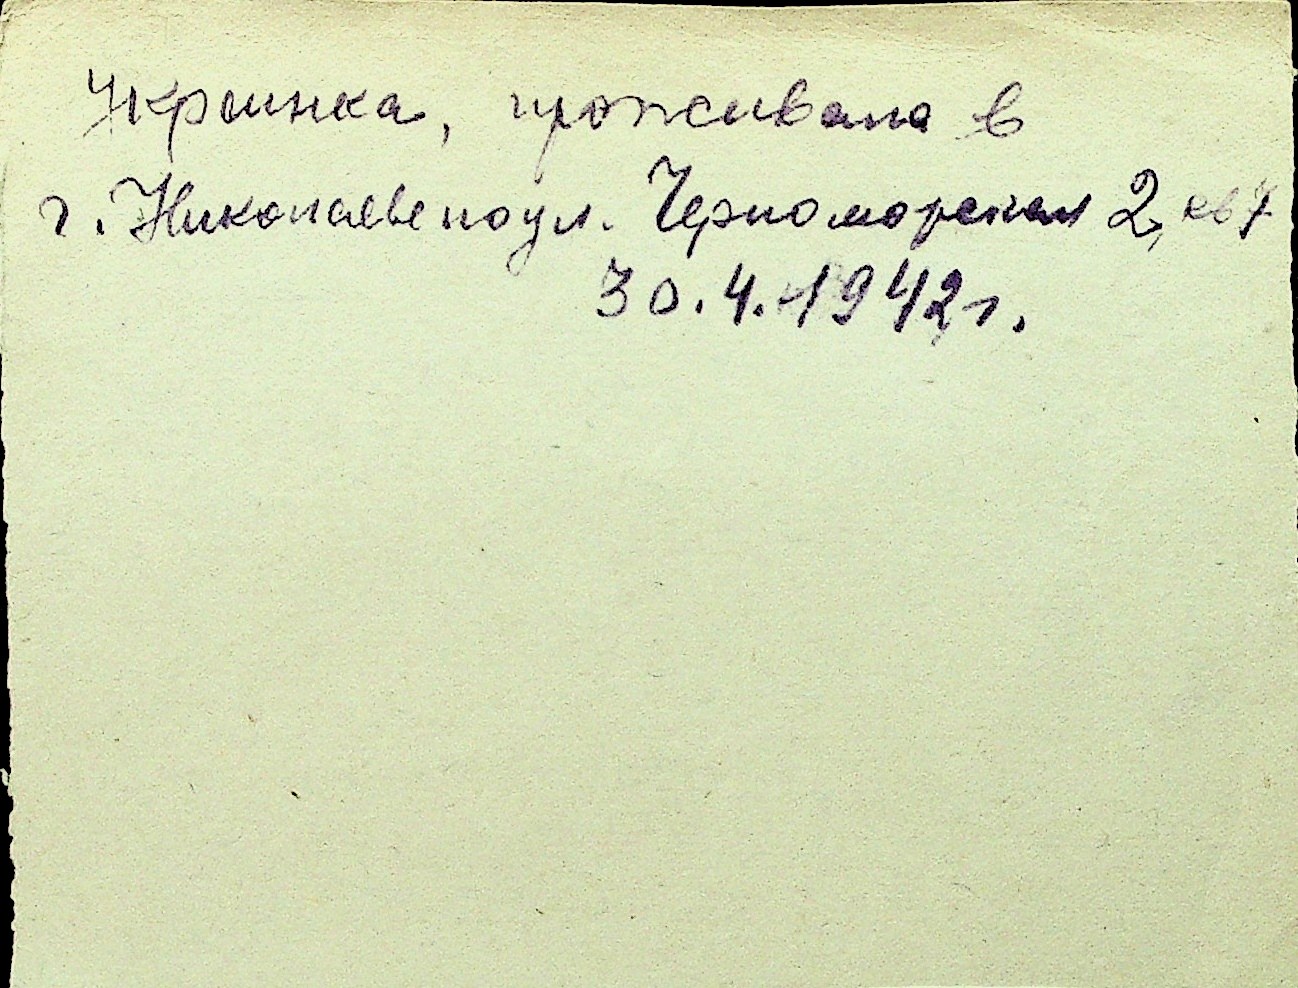 Украинка, проживала в
г. Николаеве по ул. Черноморская 2, кв 7
30.4.1942 г.